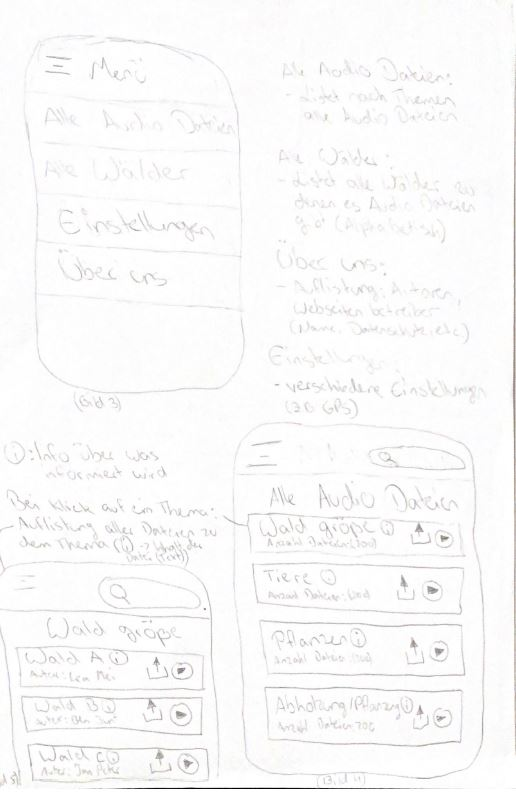 Menü
Alle Audio Dateien
Alle Wälder
Einstellungen
Über uns
(Bild 3)
Alle Audio Dateien:
- Listet nach Themen
alle Audio Dateien
Alle Wälder:
- Listet alle Wälder zu
denen es Audio Dateien
gibt (Alphabetisch)
Über uns:
- Auflistung: Autoren,
Webseiten betreiber
(Name, Datenschutz, etc)
Einstellungen:
- verschiedene Einstellungen
(z.B GPS)
i: Info über was
informiert wird
Bei klick auf ein Thema:
Auflistung aller Dateien zu
dem Thema (i -> Inhalt der
Datei (Text))
Wald größe
Wald A i
Autor: Lea Mei
Wald B i
Autor: Ben
Wald C i
Autor: Jan Peter
Alle Audio Dateien
Wald größe i
Anzahl Dateien:
Tiere i
Anzahl Dateien:
Pflanzen i
Anzahl Dateien:
Abholzung/Pflanzung i
Anzahl Dateien
(Bild 4)